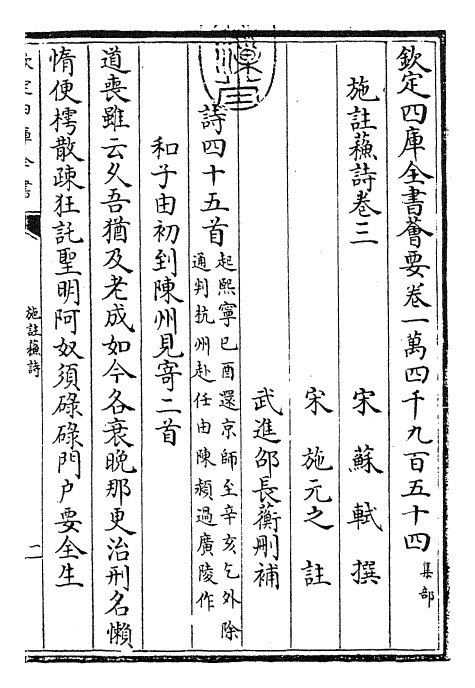 欽定四庫全書薈要卷一萬四千九百五十四 集部
施註蘓詩卷三
宋 蘇軾 撰
宋 施元之 註
武進邵長蘅刪補
詩四十五首 起熙寧己酉還京師至辛亥乞外除
通判杭州赴任由陳潁過廣陵作
和子由初到陳州見寄二首
道喪雖云久吾猶及老成如今各衰晚那更治刑名懶
惰便樗散疎狂託聖明阿奴須碌碌門户要全生
欽定四庫全書
施註蘓詩
二